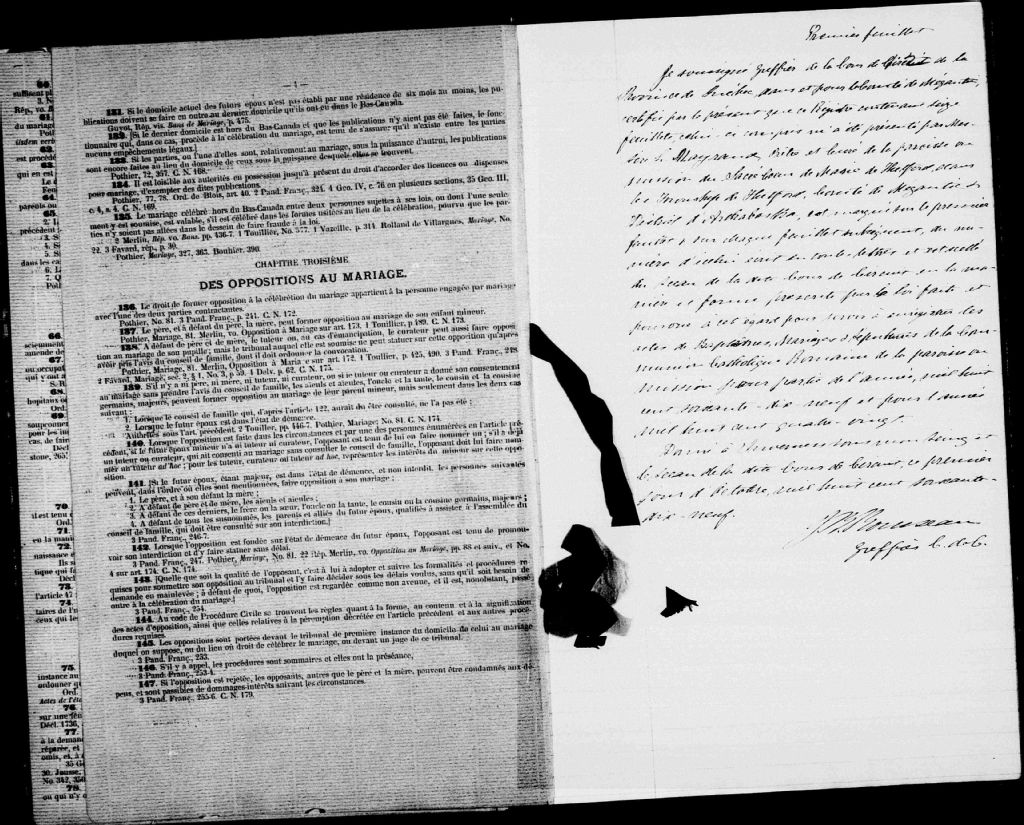 — 4 —
131. Si le domicile actuel des futurs époux n'est pas établi par une résidence de six mois au moins, les pu-
blications doivent se faire en outre au dernier domicile qu'ils ont eu dans le Bas-Canada.
Guyot, Rép. vis. Bans de Mariage, p. 475.
132. [Si le dernier domicile est hors du Bas-Canada et que les publications n'y aient pas été faites, le fonc-
tionnaire qui, dans ce cas, procède à la célébration du mariage, est tenu de s'assurer qu'il n'existe entre les parties
aucuns empêchements légaux.]
133. Si les parties, ou l'une d'elles sont, relativement au mariage, sous la puissance d'autrui, les publications
sont encore faites au lieu du domicile de ceux sous la puissance desquels elles se trouvent.
Pothier, 72, 357. C. N. 168.
134. Il est loisible aux autorités en possession jusqu'à présent du droit d'accorder des licences ou dispenses
pour mariage, d'exempter des dites publications.
Pothier, 77, 78. Ord. de Blois, art. 40. 2 Pand. Franç., 324. 4 Geo. IV, c. 76 en plusieurs sections, 35 Geo. III,
c. 4, s. 4. C. N. 169.
135. Le mariage célébré hors du Bas-Canada entre deux personnes sujettes à ses lois, ou dont l'une seule-
ment y est soumise, est valable, s'il est célébré dans les formes usitées au lieu de la célébration, pourvu que les par-
ties n'y soient pas allées dans le dessein de faire fraude à la loi.
2 Merlin, Rép. vo. Bans. pp. 436-7. 1 Touillier, No. 577. 1 Vazeille, p. 314. Rolland de Villargues, Mariage, No.
22. 3 Favard, rép., p. 30.
Pothier, Mariage, 327, 363. Bouhier, 390.
CHAPITRE TROISIÈME
DES OPPOSITIONS AU MARIAGE.
136. Le droit de former opposition à la célébration du mariage appartient à la personne engagée par mariage
avec l'une des deux parties contractantes.
Pothier, No. 81. 3 Pand. Franç., p. 241. C. N. 172.
137. Le père, et à défaut du père, la mère, peut former opposition au mariage de son enfant mineur.
Pothier, Mariage, 81. Merlin, vo. Opposition à Mariage sur art. 173. 1 Touillier, p 489. C. N. 173.
138. A défaut de père et de mère, le tuteur ou, au cas d'émancipation, le curateur peut aussi faire opposi-
tion au mariage de son pupille; mais le tribunal auquel elle est soumise ne peut statuer sur cette opposition qu'après
avoir pris l'avis du conseil de famille, dont il doit ordonner la convocation.
Pothier, Mariage, 81. Merlin, Opposition à Maria e sur art. 172. 1 Touillier, p. 425, 490. 3 Pand. Franç., 248
2 Favard, Mariage, sec. 2, § 1, No. 3, p. 59. 4 Delv. p. 62. C. N. 175.
139. S'il n'y a ni père, ni mère, ni tuteur, ni curateur, ou si le tuteur ou curateur a donné son consentement
au mariage sans prendre l'avis du conseil de famille, les aïeuls et aïeules, l'oncle et la tante, le cousin et la cousine
germains, majeurs, peuvent former opposition au mariage de leur parent mineur, mais seulement dans les deux cas
suivants:
1. Lorsque le conseil de famille qui, d'après l'article 122, aurait dû être consulté, ne l'a pas été;
2. Lorsque le futur époux est dans l'état de démence.
Authorités sous l'art. précédent. 2 Touiller, pp. 446-7. Pothier, Mariage, No. 81. C. N. 174.
140. Lorsque l'opposition est faite dans les circonstances et par une des personnes énumérées en l'article pré-
cédent, si le futur époux mineur n'a ni tuteur ni curateur, l'opposant est tenu de lui en faire nommer un; s'il a déjà
un tuteur ou curateur, qui ait consenti au mariage sans consulter le conseil de famille, l'opposant doit lui faire nom-
mer un tuteur ad hoc; pour les tuteur, curateur ou tuteur ad hoc, représenter les intérêts du mineur sur cette oppo-
sition.
141. [Si le futur époux, étant majeur, est dans l'état de démence, et non interdit, les personnes suivantes
peuvent, dans l'ordre où elles sont mentionnées, faire opposition à son mariage;
1. Le père, et à son défaut la mère;
2. A défaut de père et de mère, les aïeuls et aïeules;
3. A défaut de ces derniers, le frère ou la sœur, l'oncle ou la tante, le cousin ou la cousine germains, majeurs;
4. A défaut de tous les susnommés, les parents et alliés du futur époux, qualifiés à assister à l'assemblée du
conseil de famille, qui doit être consulté sur son interdiction.]
3 Pand. Franç., 246-7.
142. Lorsque l'opposition est fondée sur l'état de démence du futur époux, l'opposant est tenu de promou-
voir son interdiction et d'y faire statuer sans délai.
3 Pand. Franç., 247. Pothier, Mariage, No. 81. 22 Rép. Merlin, vo. Opposition au Mariage, pp. 88 et suiv., et No.
4 sur art. 174. C. N. 174.
143. [Quelle que soit la qualité de l'opposant, c'est à lui à adopter et suivre les formalités et procédures re-
quises pour soumettre son opposition au tribunal et l'y faire décider sous les délais voulus, sans qu'il soit besoin de
demande en mainlevée; à défaut de quoi, l'opposition est regardée comme non avenue, et il est, nonobstant, passé
outre à la célébration du mariage.]
3 Pand. Franç., 254.
144. Au code de Procédure Civile se trouvent les règles quant à la forme, au contenu et à la signification
des actes d'opposition, ainsi que celles relatives à la péremption décrétée en l'article précédent et aux autres procé-
dures requises.
145. Les oppositions sont portées devant le tribunal de première instance du domicile de celui au mariage
duquel on s'oppose, ou du lieu où droit de célébrer le mariage, ou devant un juge de ce tribunal.
3 Pand. Franç., 253.
146. S'il y a appel, les procédures sont sommaires et elles ont la préséance.
3 Pand. Franç., 253-4.
147. Si l'opposition est rejetée, les opposants, autres que le père et la mère, peuvent être condamnés aux dé-
pens, et sont passibles de dommages-intérêts suivant les circonstances.
3 Pand. Franç., 255-6. C. N. 179.
Premier feuillet
Je soussigné Greffier de la Cour de Circuit de la
Province de Québec, dans et pour le Comté de Mégantic,
certifie par le présent que ce Registre contenant seize
feuillets celui-ci compris m'a été présenté par Mes-
sire Mayrand, Ptre et curé de la paroisse ou
mission du Sacré Cœur de Marie de Thetford, dans
le Township de Thetford, Comté de Mégantic
District d'Arthabaska, est marqué sur le premier
feuillet & sur chaque feuillet subséquent, du nu-
méro d'icelui écrit en toutes lettres et est scellé
du sceau de la dite Cour de Circuit en la ma-
nière et forme prescrite par la loi faite et
pourvue à cet égard pour servir à enregistrer les
actes de Baptêmes, Mariages & Sépultures de la Com-
munion Catholique Romaine de la paroisse ou
mission pour partie de l'année, mil huit
cent soixante-dix-neuf et pour l'année
mil huit cent quatre-vingt.
Donné à Inverness sous mon seing et
le sceau de la dite Cour de Circuit, ce premier
jour d'Octobre, mil huit cent soixante-
dix-neuf.
Rousseau
Greffier C. de C.